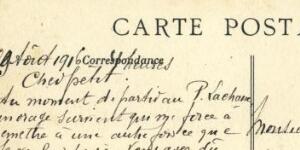 CARTE POST
Août 1916 Correspondance heures
Cher petit.
Au moment de partir au P. Lachaise
un orage survient qui me force à
remettre à une autre journée que
Monsieu